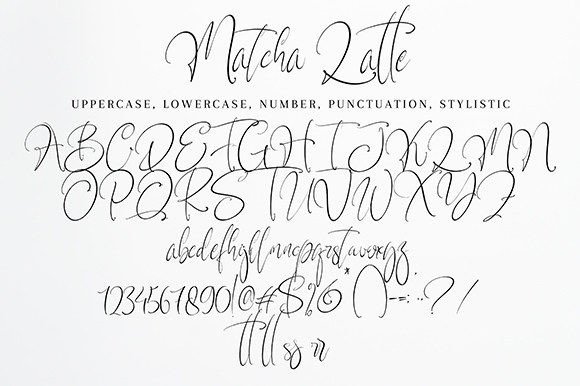 Matcha Latte
UPPERCASE, LOWERCASE, NUMBER, PUNCTUATION, STYLISTIC
ABCDEFGHIJKLMN
OPQRSTUVWXYZ
abcdefghijklmnopqrstuvwxyz
1234567890!@#$%&*()-=:;..?/